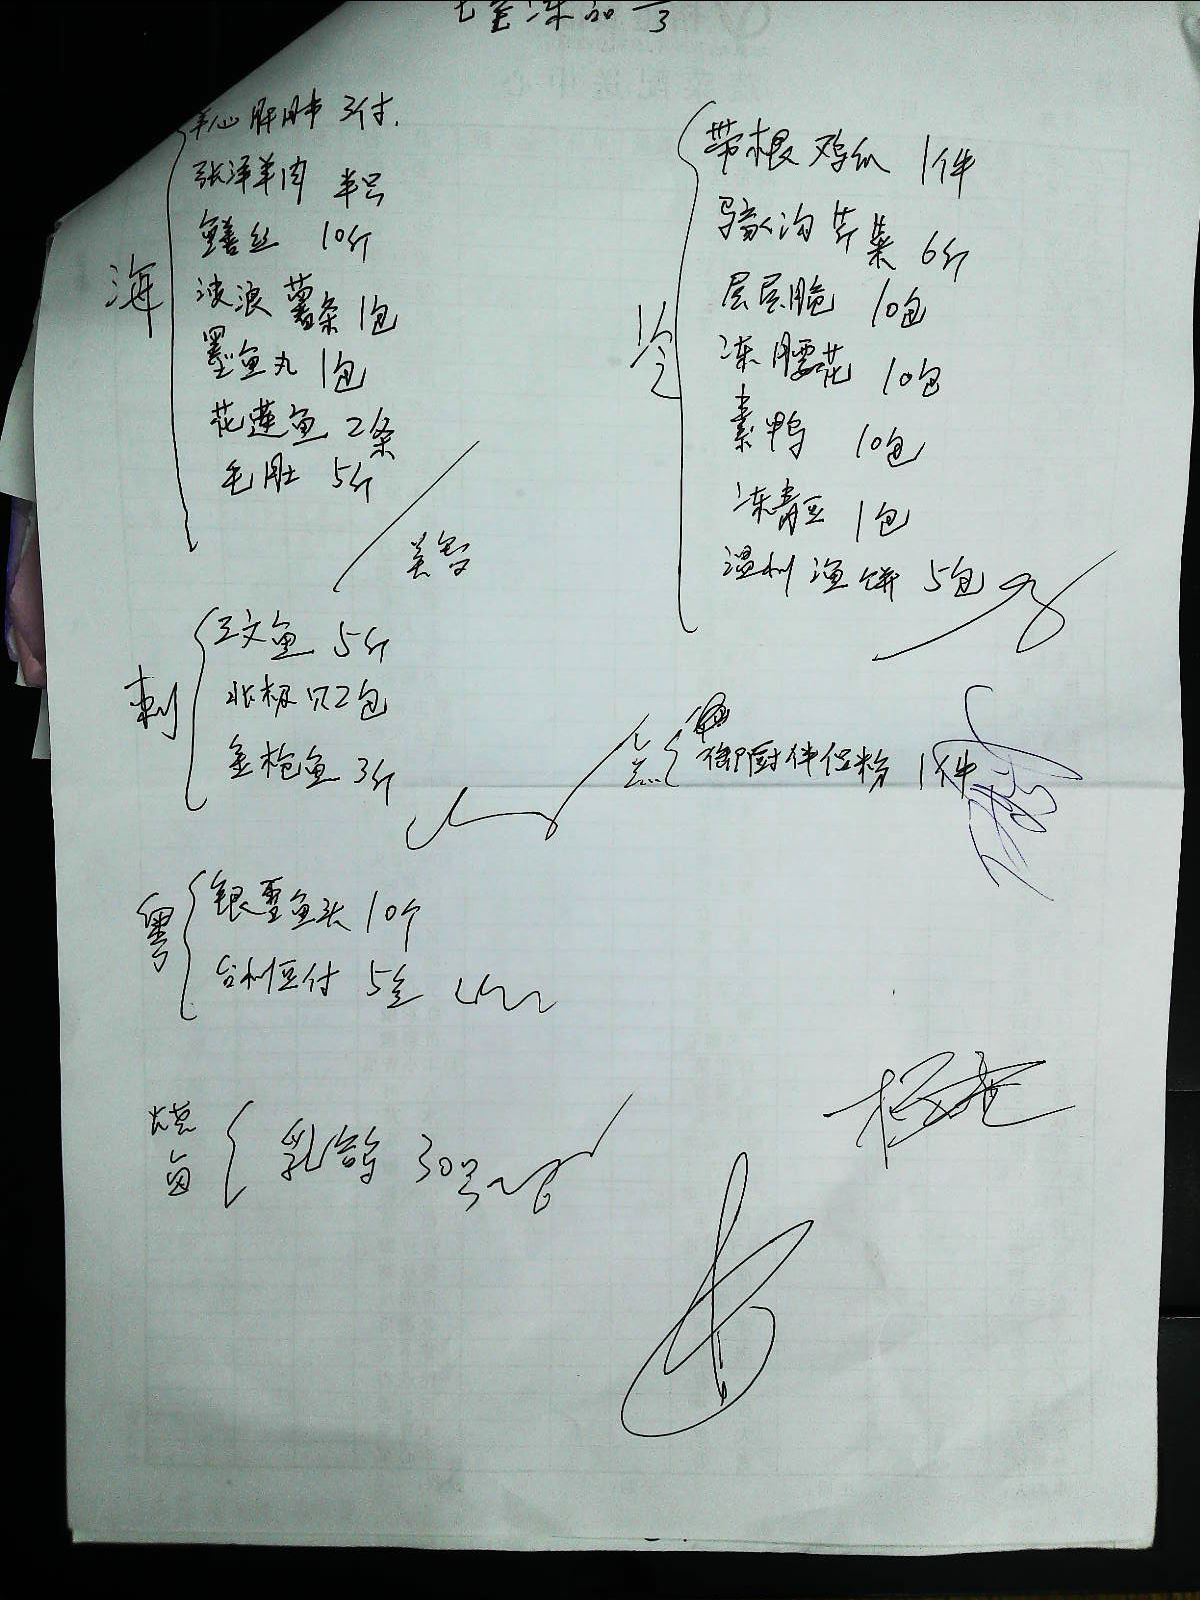 冻品 3
海
羊心肝肺 3付.
张泽羊肉 半只
鳝丝 10斤
波浪薯条 1包
墨鱼丸 1包
花莲鱼 2条
毛肚 5斤
刺
三文鱼 5斤
北极贝2包
金枪鱼 3斤
粤
银雪鱼头 10个
台州豆付 5盒
烧卤
乳鸽 30只
冷
带根鸡爪 1件
马家沟芹菜 6斤
层层脆 10包
冻腰花 10包
素鸭 10包
冻青豆 1包
温州渔饼 5包
点
御厨伴侣粉 1件